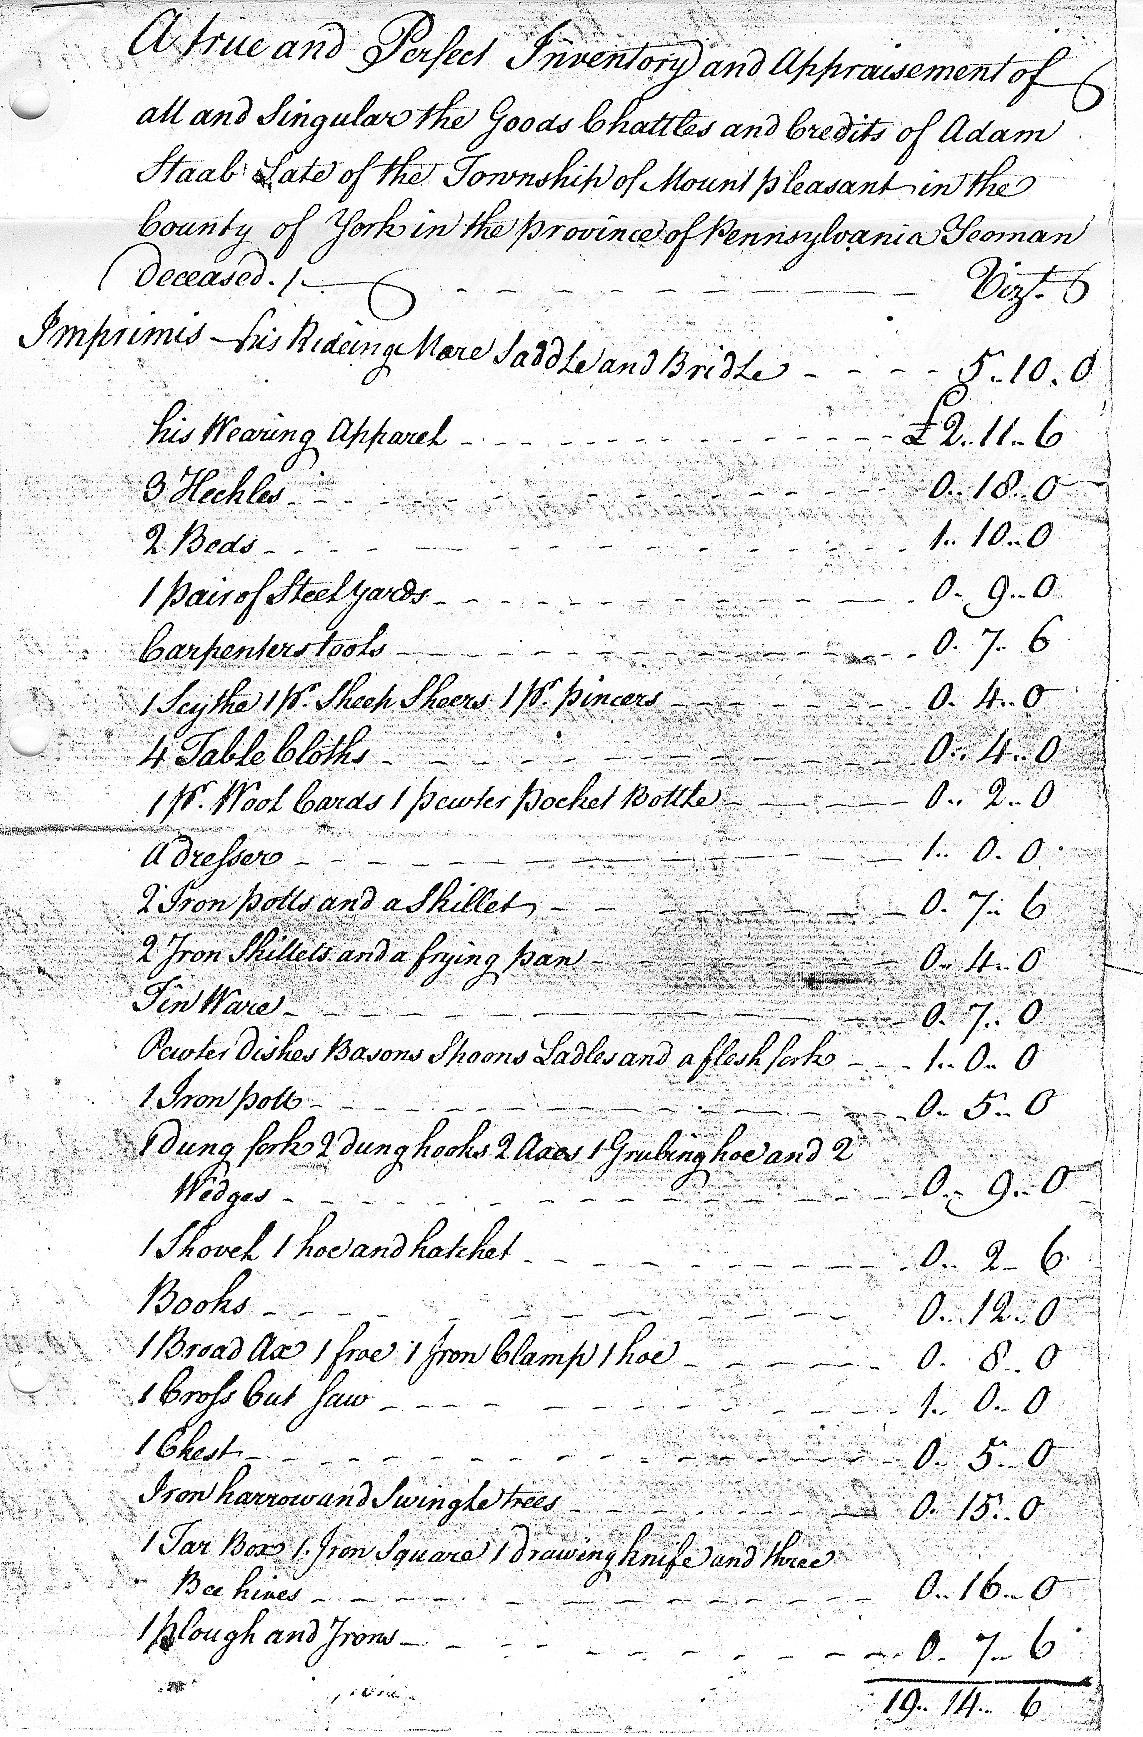 A true and Perfect Inventory and Appraisement of
all and Singular the Goods Chattles and Credits of Adam
Staab Late of the Township of Mount pleasant in the
County of York in the province of Pennsylvania Yeoman
deceased. /. Vizt.
Imprimis his Rideing Mare Saddle and Bridle - - - - 5..10.0
his Wearing Apparel - - - - £2..11..6
3 Heckles - - - - 0..18..0
2 Beds - - - - 1..10..0
1 pair of Steel yards - - - - 0..9..0
Carpenters tools - - - - 0.7..6
1 Scythe 1 pr. Sheep Sheers 1 pr. pincers - - - - 0.4..0
4 Table Cloths - - - - 0..4..0
1 pr. Wool Cards 1 pewter pocket Bottle - - - - 0..2..0
A dresser - - - - 1..0.0
2 Iron potts and a Skillet - - - - 0.7..6
2 Iron Skillets and a frying pan - - - - 0..4..0
Tin Ware - - - - 0.7..0
Pewter dishes Basons Spoons Ladles and a flesh fork - - - 1..0..0
1 Iron pott - - - - 0..5..0
1 Dung fork 2 dung hooks 2 Axes 1 Grubing hoe and 2
Wedges - - - - 0..9..0
1 Shovel 1 hoe and hatchet - - - - 0..2..6
Books - - - - 0..12..0
1 Broad Ax 1 froe 1 Iron Clamp 1 hoe - - - - 0.8..0
1 Cross Cut Saw - - - - 1..0..0
1 Chest - - - - 0..5..0
Iron harrow and Swingle trees - - - - 0.15..0
1 Tar Box 1 Iron Square 1 drawing knife and three
Bee hives - - - - 0..16..0
1 plough and Irons - - - - 0.7..6
19..14..6